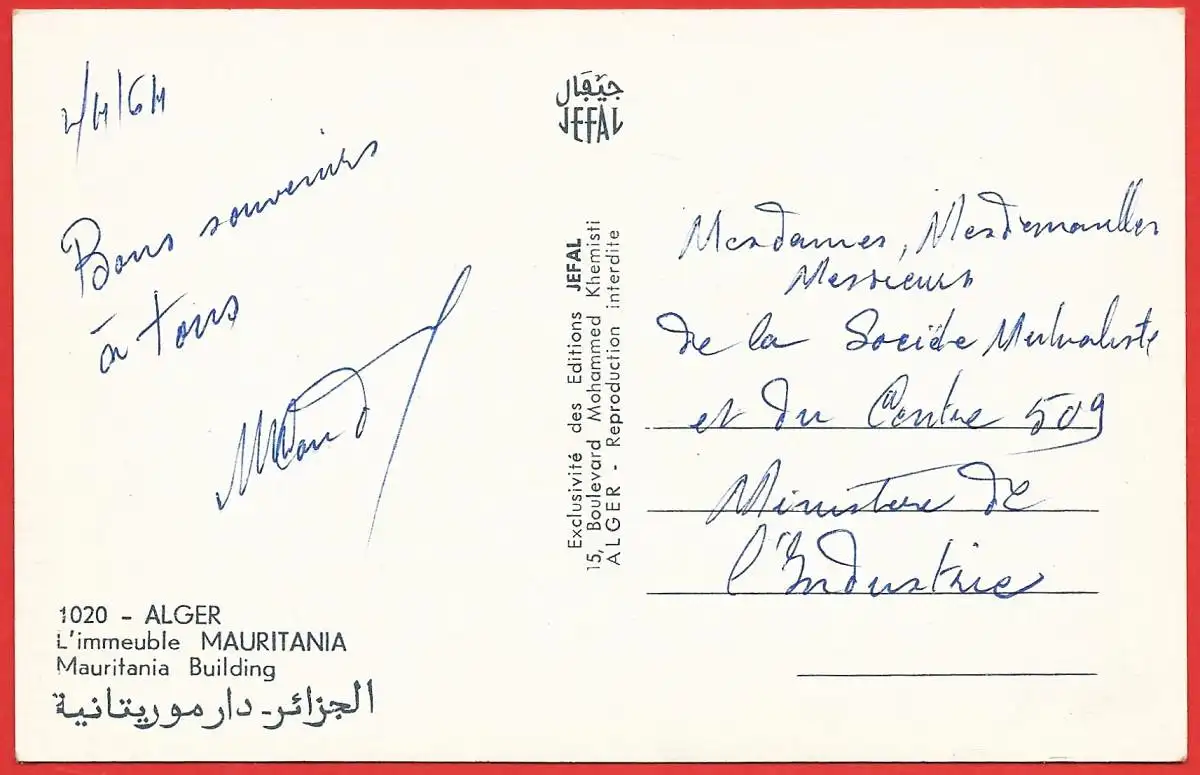 2/4/64
Bons souvenirs
à tous
1020 - ALGER
L'immeuble MAURITANIA
Mauritania Building
الجزائر - دار موريتانية
جيفال
JEFAL
Exclusivité des Editions JEFAL
15, Boulevard Mohammed Khemisti
ALGER - Reproduction interdite
Mesdames, Mesdemoiselles
Messieurs
de la Société Mutualiste
et du Centre 509
Ministère de
l'Industrie